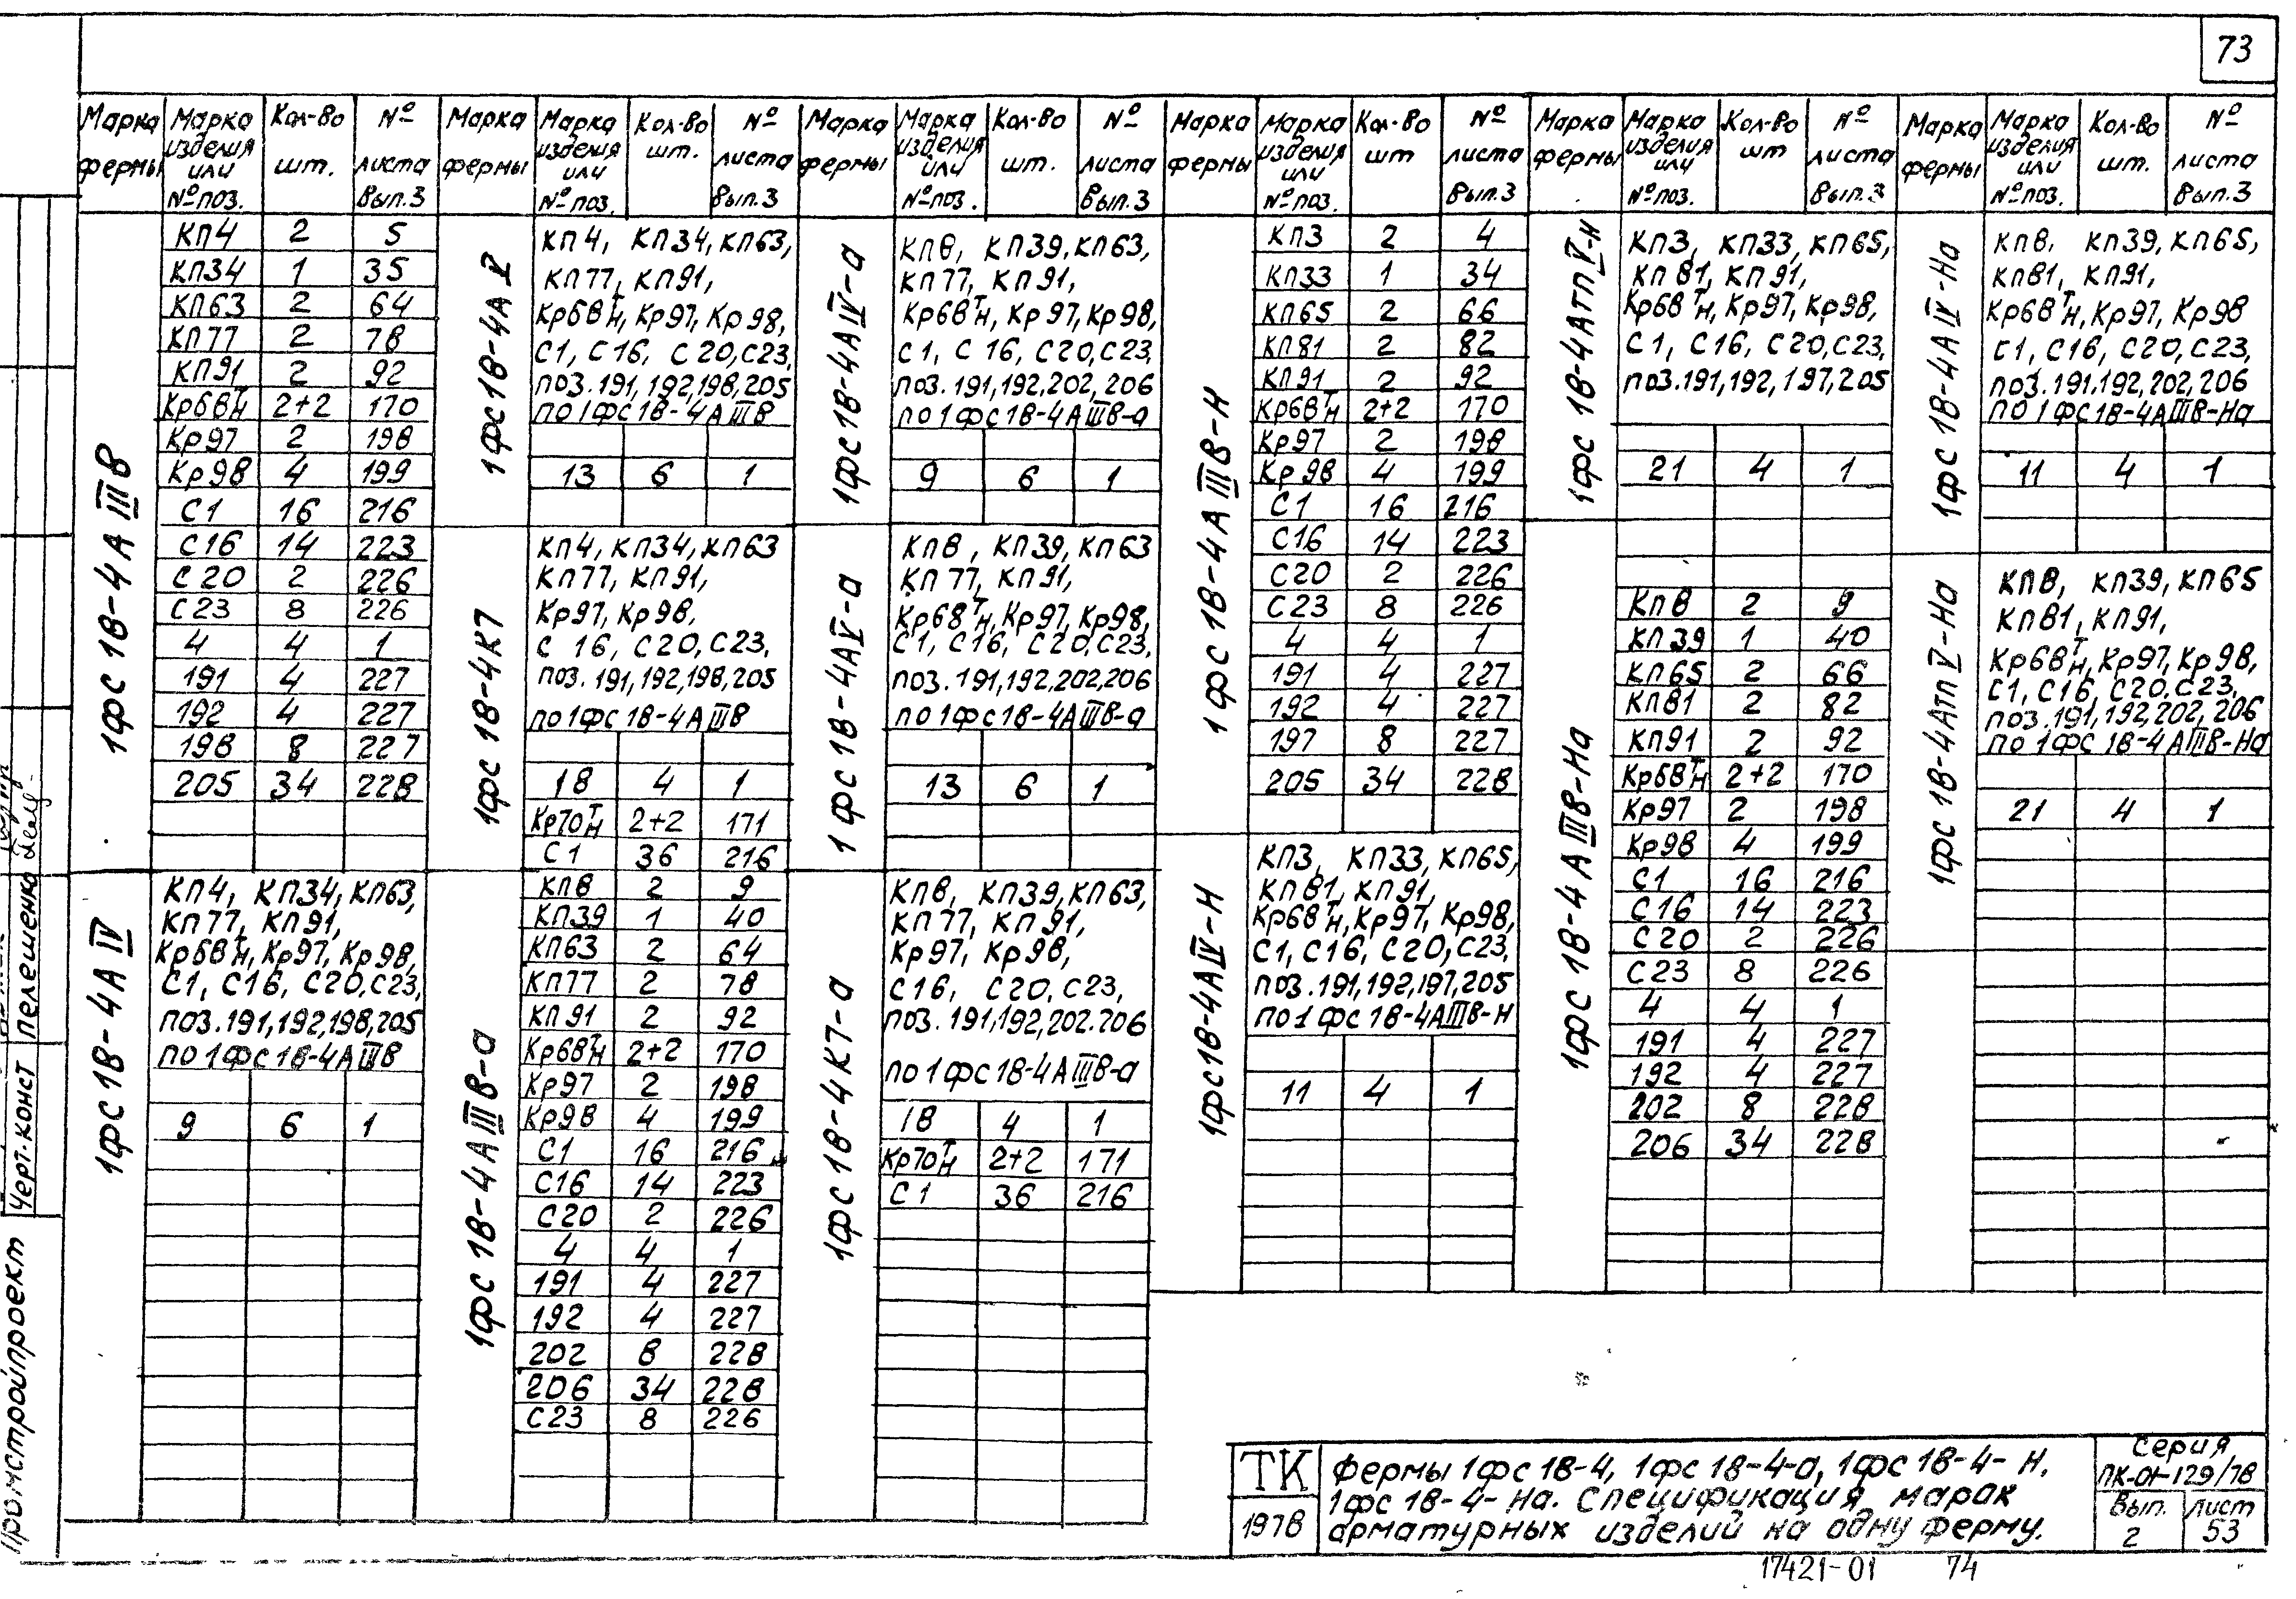 73
Марка фермы | Марка изделия или № поз. | Кол-во шт. | № листа Вып.3
1ФС 18-4А IIIВ
КП4 2 5
КП34 1 35
КП63 2 64
КП77 2 78
КП91 2 92
Кр68ТН 2+2 170
Кр97 2 198
Кр98 4 199
С1 16 216
С16 14 223
С20 2 226
С23 8 226
4 4 1
191 4 227
192 4 227
198 8 227
205 34 228
1ФС 18-4А IV
КП4, КП34, КП63,
КП77, КП91,
Кр68ТН, Кр97, Кр98,
С1, С16, С20, С23,
поз. 191, 192, 198, 205
по 1ФС 18-4А IIIВ
9 6 1
Марка фермы | Марка изделия или № поз. | Кол-во шт. | № листа Вып.3
1ФС 18-4А V
КП4, КП34, КП63,
КП77, КП91,
Кр68ТН, Кр97, Кр98,
С1, С16, С20, С23,
поз. 191, 192, 198, 205
по 1ФС 18-4А IIIВ
13 6 1
1ФС 18-4К7
КП4, КП34, КП63
КП77, КП91,
Кр97, Кр98,
С 16, С20, С23,
поз. 191, 192, 198, 205
по 1ФС 18-4А IIIВ
18 4 1
Кр70ТН 2+2 171
С1 36 216
1ФС 18-4А IIIВ-а
КП8 2 9
КП39 1 40
КП63 2 64
КП77 2 78
КП91 2 92
Кр68ТН 2+2 170
Кр97 2 198
Кр98 4 199
С1 16 216
С16 14 223
С20 2 226
4 4 1
191 4 227
192 4 227
202 8 228
206 34 228
С23 8 226
Марка фермы | Марка изделия или № поз. | Кол-во шт. | № листа Вып.3
1ФС 18-4А IV-а
КП8, КП39, КП63,
КП77, КП91,
Кр68ТН, Кр97, Кр98,
С1, С 16, С20, С23,
поз. 191, 192, 202, 206
по 1ФС 18-4А IIIВ-а
9 6 1
1ФС 18-4АV-а
КП8, КП39, КП63
КП 77, КП91,
Кр68ТН, Кр97, Кр98,
С1, С16, С20, С23,
поз. 191, 192, 202, 206
по 1ФС 18-4А IIIВ-а
13 6 1
1ФС 18-4К7-а
КП8, КП39, КП63,
КП77, КП91,
Кр97, Кр98,
С16, С20, С23,
поз. 191, 192, 202. 206
по 1ФС 18-4А IIIВ-а
18 4 1
Кр70ТН 2+2 171
С1 36 216
Марка фермы | Марка изделия или № поз. | Кол-во шт | № листа Вып.3
1ФС 18-4А IIIВ-Н
КП3 2 4
КП33 1 34
КП65 2 66
КП81 2 82
КП91 2 92
Кр68ТН 2+2 170
Кр97 2 198
Кр98 4 199
С1 16 216
С16 14 223
С20 2 226
С23 8 226
4 4 1
191 4 227
192 4 227
197 8 227
205 34 228
1ФС 18-4А IV-Н
КП3, КП33, КП65,
КП81, КП91,
Кр68ТН, Кр97, Кр98,
С1, С16, С20, С23,
поз. 191, 192, 197, 205
по 1ФС 18-4А IIIВ-Н
11 4 1
Марка фермы | Марка изделия или № поз. | Кол-во шт | № листа Вып.3
1ФС 18-4АТП V-Н
КП3, КП33, КП65,
КП81, КП91,
Кр68ТН, Кр97, Кр98,
С1, С16, С20, С23,
поз. 191, 192, 197, 205
21 4 1
1ФС 18-4А IIIВ-На
КП8 2 9
КП39 1 40
КП65 2 66
КП81 2 82
КП91 2 92
Кр68ТН 2+2 170
Кр97 2 198
Кр98 4 199
С1 16 216
С16 14 223
С20 2 226
С23 8 226
4 4 1
191 4 227
192 4 227
202 8 228
206 34 228
Марка фермы | Марка изделия или № поз. | Кол-во шт. | № листа Вып.3
1ФС 18-4А IV-На
КП8, КП39, КП65,
КП81, КП91,
Кр68ТН, Кр97, Кр98
С1, С16, С20, С23,
поз. 191. 192, 202, 206
по 1ФС 18-4А IIIВ-На
11 4 1
1ФС 18-4АТП V-На
КП8, КП39, КП65
КП81, КП91,
Кр68ТН, Кр97, Кр98,
С1, С16, С20, С23,
поз. 191, 192, 202, 206
по 1ФС 18-4А IIIВ-На
21 4 1
Черт.-конст Пелешенко
Промстройпроект
ТК
1978
Фермы 1ФС 18-4, 1ФС 18-4-а, 1ФС 18-4-Н,
1ФС 18-4-На. Спецификация марак
арматурных изделий на одну ферму.
Серия
ПК-01-129/78
Вып. Лист
2 53
17421-01 74